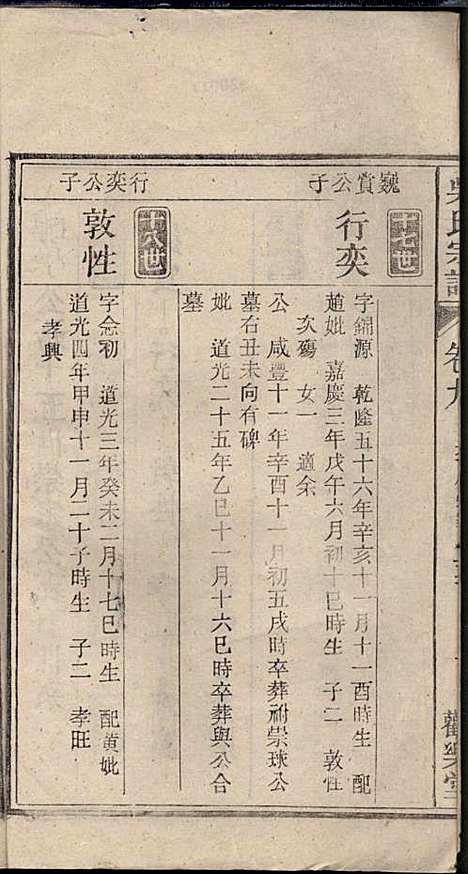 吳氏宗譜
卷九
觀樂堂
巍賞公子
十七世
行奕
字錦源 乾隆五十六年辛亥十一月十一酉時生 配
趙妣 嘉慶三年戊午六月初十巳時生 子二 敦性
次殤 女一 適余
公 咸豐十一年辛酉十一月初五戌時卒葬祔崇球公
墓右丑未向有碑
妣 道光二十五年乙巳十一月十六巳時卒葬與公合
墓
行奕公子
十八世
敦性
字念初 道光三年癸未二月十七巳時生 配黃妣
道光四年甲申十一月二十子時生 子二 孝旺
孝興